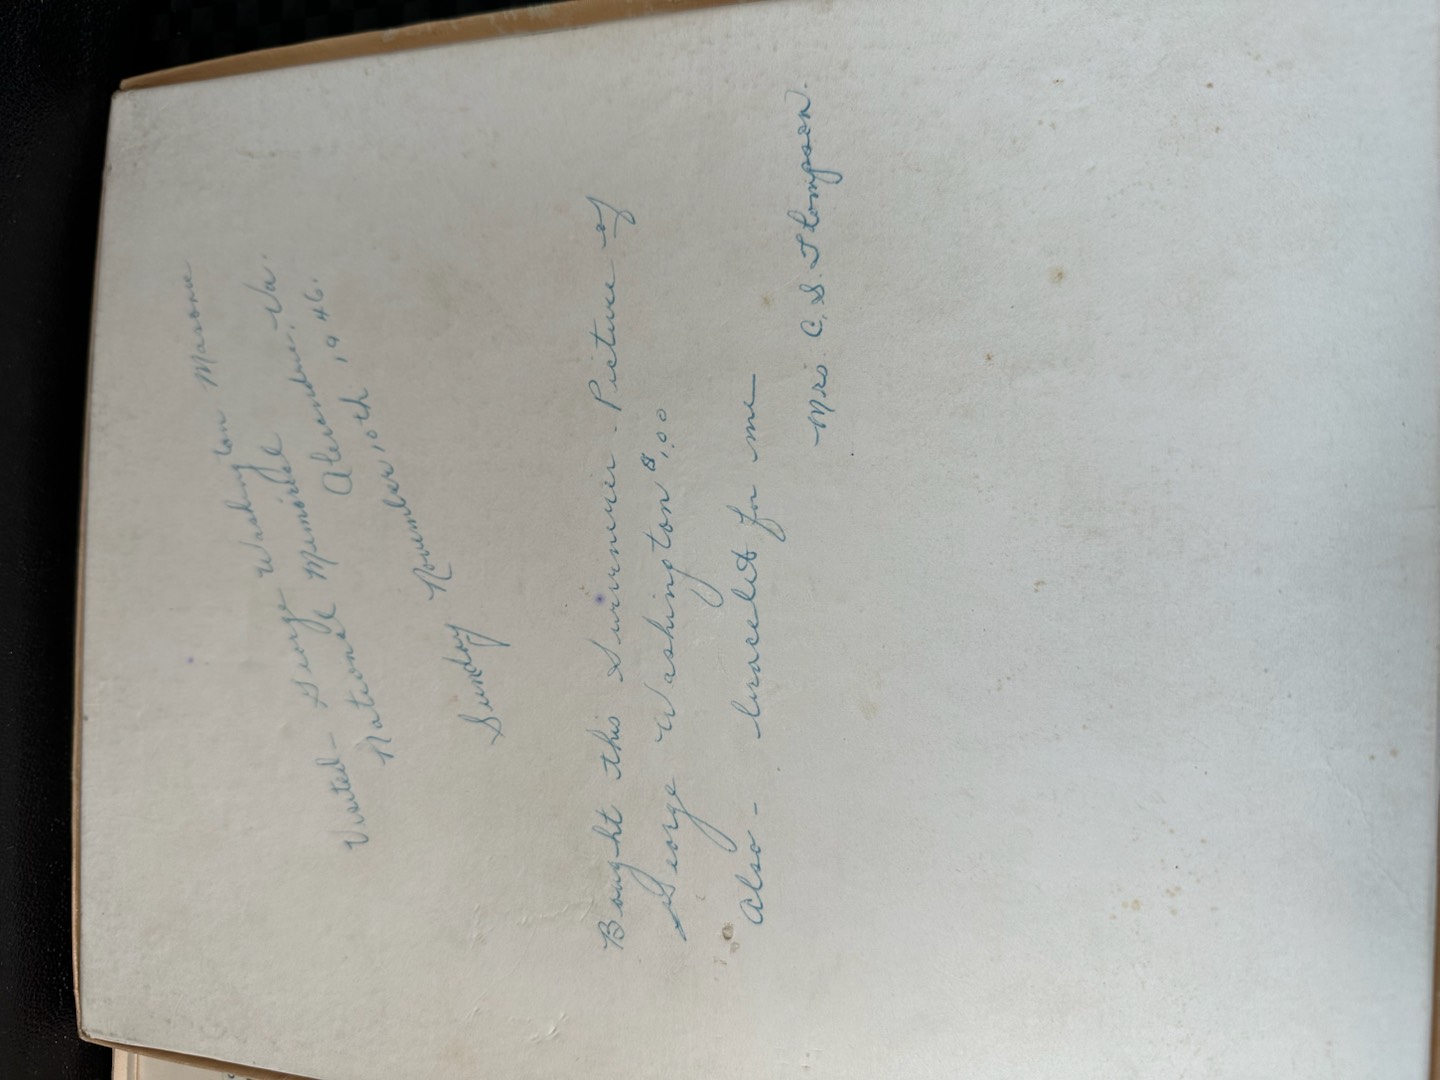 Visited - George Washington Masonic
National Memorial
Alexandria, Va.
Sunday November 10th 1946.
Bought this Suvineir - Picture of
George Washington $1.00
Also - bracelet for me
Mrs. C. S. Thompson.